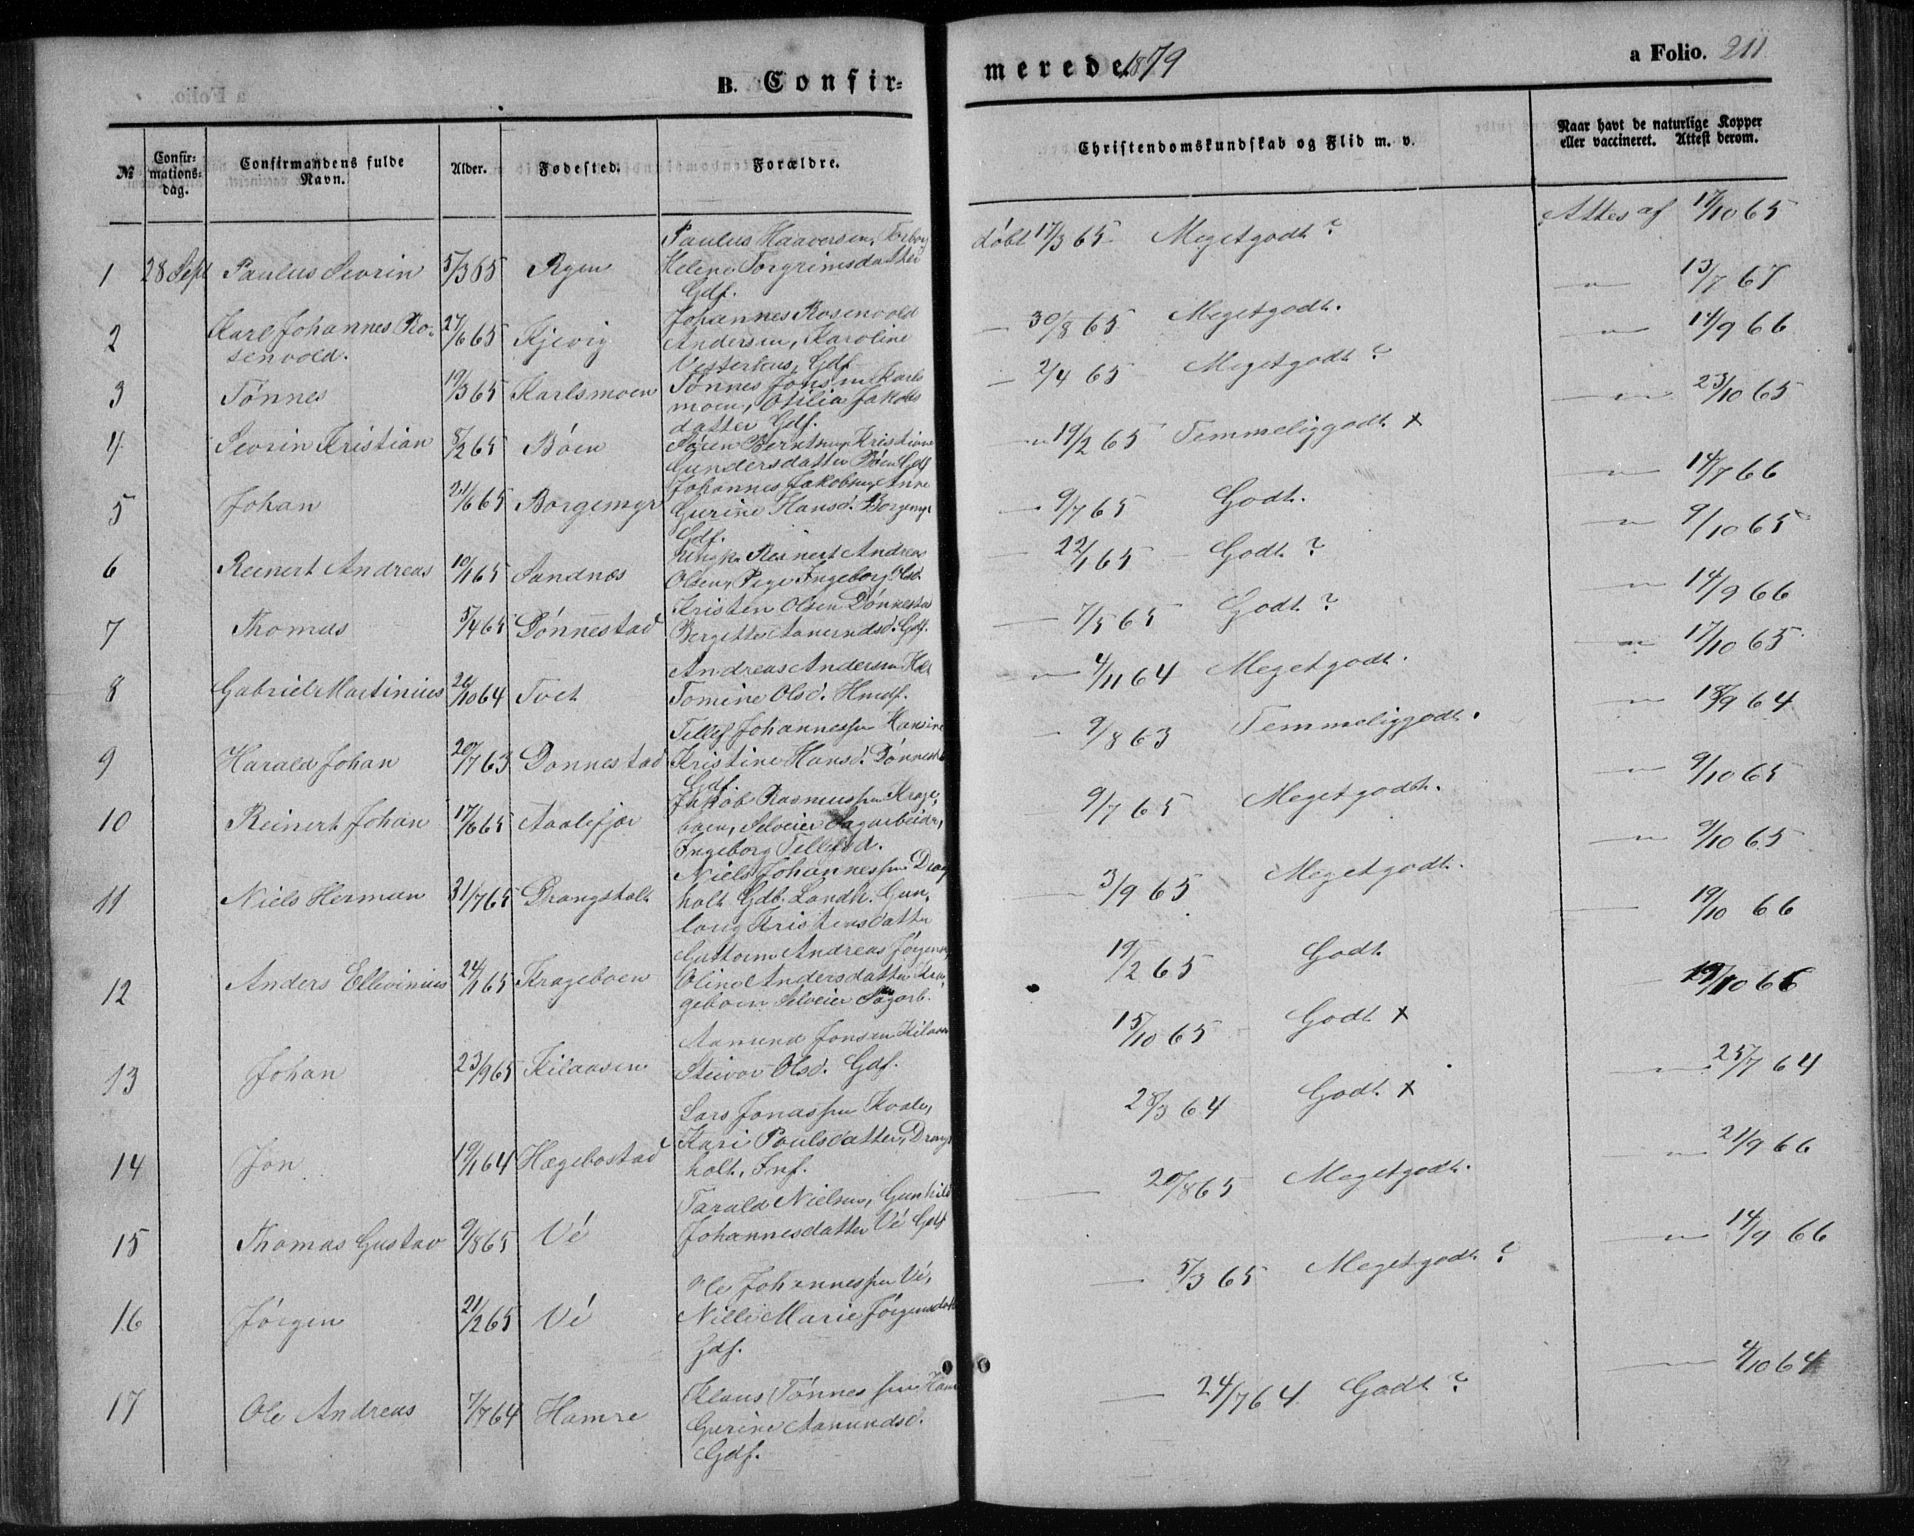 B. Confir-
merede 1879
a Folio. 211
№
Confirmationsdag.
Confirmandens fulde Navn.
Alder.
Fødested.
Forældre.
Christendomskundskab og Flid m. v.
Naar havt de naturlige Kopper eller vaccineret. Attest derom.
1 28 Sept Paulus Sevrin 5/3 65 Rgen
Paulus Haaversen, Torborg
Helene Torgrimsdatter
Gdf.
døbt 17/3 65 Megetgodt ? Attes af 17/10 65
2 Karl Johannes Rosenvold. 27/6 65 Kjevig
Johannes Rosenvold
Andersen, Karoline
Gdf
— 30/8 65 Megetgodt. — 13/7 67
3 Tønnes 19/3 65 Karlsmoen
Tønnes Jonsen Karls
moen, Otilia Jakobs
datter Gdf.
— 2/4 65 Megetgodt ? — 14/9 66
4 Sevrin Kristian 8/2 65 Bøen
Søren Berntsen, Kristiane
Gundersdatter Bøen Gdf
— 19/2 65 Temmeliggodt x — 23/10 65
5 Johan 21/6 65 Borgemyr
Johannes Jakobsen, Anne
Gurine Hansd. Borgemyr
Gdf.
— 9/7 65 Godt. — 14/7 66
6 Reinert Andreas 10/1 65 Sandnes
Ungk. Reinert Andreas
Olsen, Pige Ingeborg Olsd.
— 22/1 65 Godt ? — 9/10 65
7 Thomas 5/4 65 Dønnestad
Kristen Olsen Dønnestad
Bergette Aanensd. Gdf.
— 7/5 65 Godt ? — 14/9 66
8 Gabriel Martinius 26/10 64 Tvet
Andreas Andersen
Tomine Olsd. Hmdf.
— 4/11 64 Megetgodt. — 17/10 65
9 Harald Johan 20/7 63 Donnestad
Tellef Johannessen Hansine
Kristine Hansd. Dønnestad
Gdf.
— 9/8 63 Temmeliggodt. — 18/9 64
10 Reinert Johan 17/6 65 Aalefjær
Jakob Rasmussen Krage-
boen, Selveier Sagarbeider,
Ingeborg Tellefsd.
9/7 65 Megetgodt. — 9/10 65
11 Niels Herman 31/7 65 Drangsholt
Niels Johannessen Drangs
holt Gdb. Landh. Gun-
borg Kristensdatter
— 3/9 65 Megetgodt. — 9/10 65
12 Anders Ellevinius 24/1 65 Krageboen
Guttorm Andreas Jørgensen,
Oline Andersdatter Kra-
geboen Selveier Sagarb.
19/2 65 Godt — 19/10 66
13 Johan 23/9 65 Kilaasen
Aanund Jonsen Kilaasen
Steivor Olsd. Gdf.
15/10 65 Godt x — 19/10 66
14 Jon 19/1 64 Hægebostad
Lars Jonassen
Kari Poulsdatter, Drangs
holt, Inf.
28/3 64 Godt x — 25/7 64
15 Thomas Gustav 9/8 65 Vé
Tarald Nielsen, Gunhild
Johannesdatter Vé Gdf
— 20/8 65 Megetgodt. — 21/9 66
16 Jørgen 21/2 65 Vé
Ole Johannessen Vé,
Nille Marie Jørgensdatt
Gdf.
— 5/3 65 Megetgodt ? — 14/9 66
17 Ole Andreas 7/7 64 Hamre
Klaus Tønnessen Ham
Gurine Aanundsd.
Gdf.
— 24/7 64 Godt ? — 4/10 64